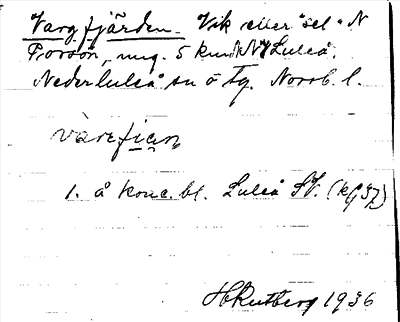 Vargfjärden. Vik eller sel N
Porsön, ung. 5 km NV Luleå.
Nederluleå sn ö tg. Norrb. l.
varefian
1. å konc. bl. Luleå SV. (kg 37)
H Rutberg 1936